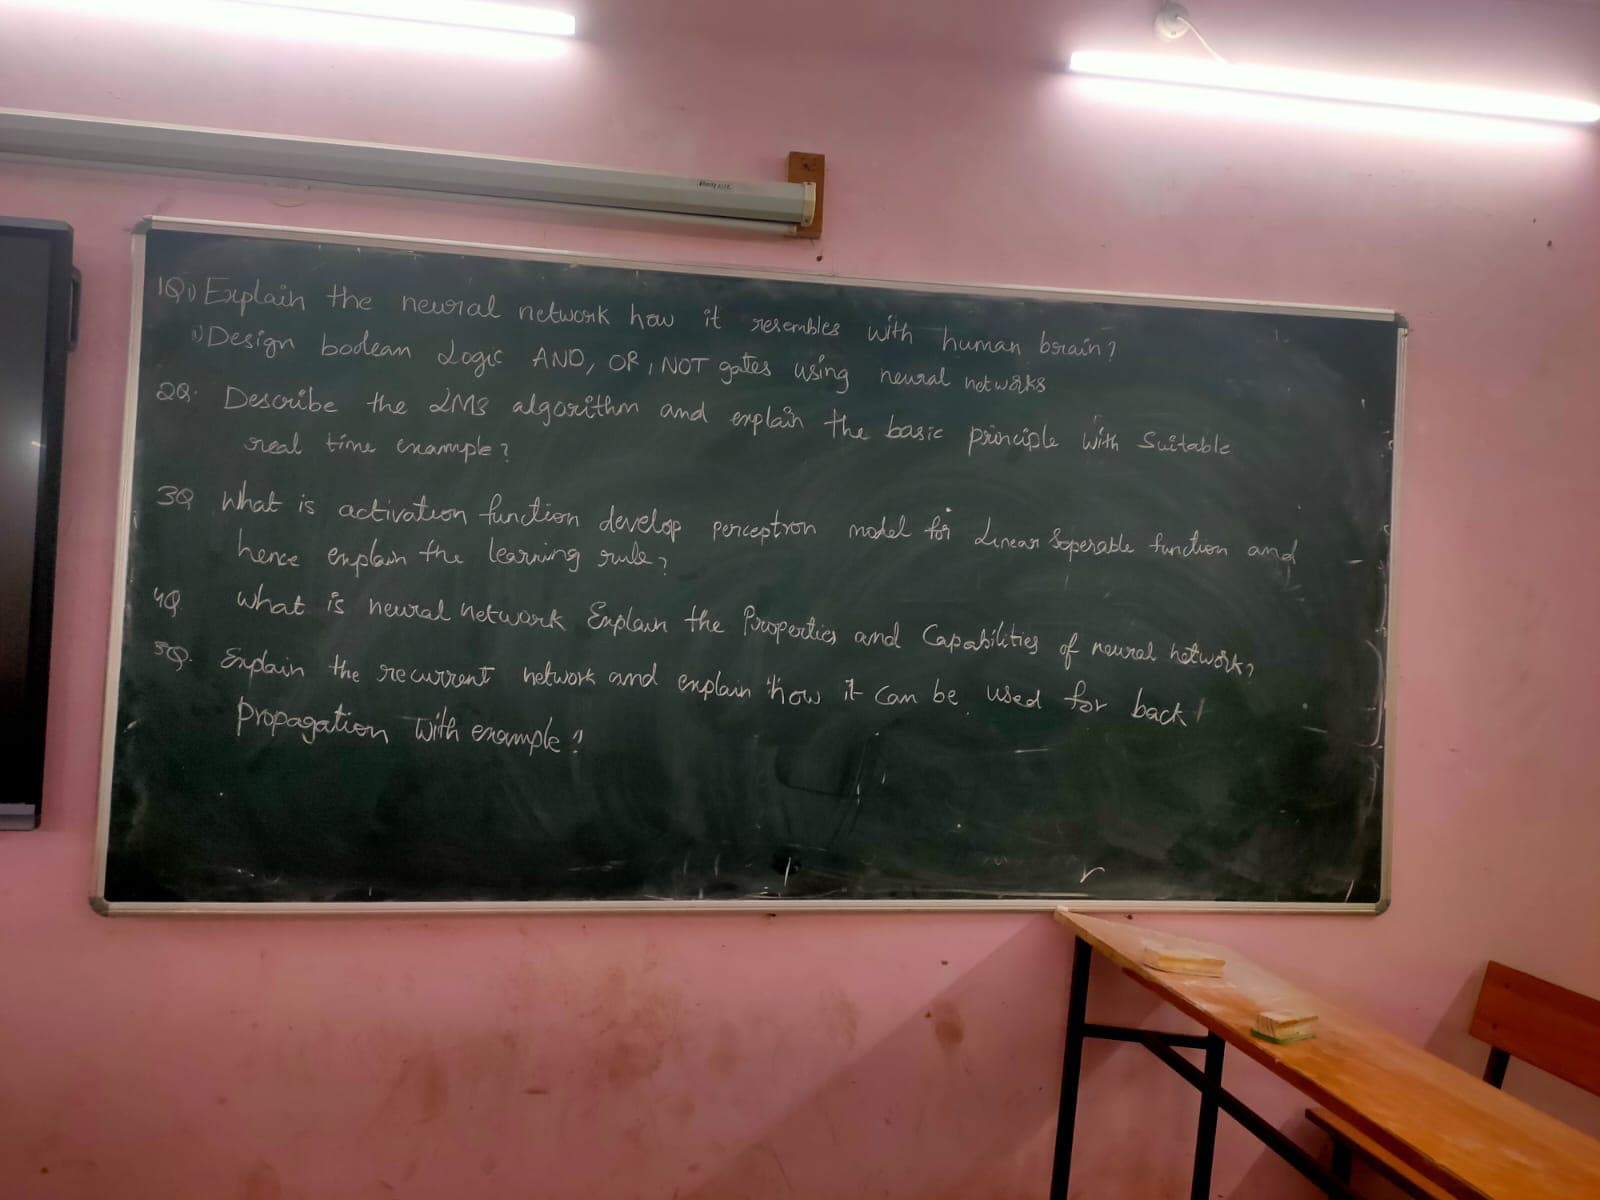 1Q i) Explain the neural network how it resembles with human brain?
i) Design boolean Logic AND, OR, NOT gates using neural networks
2Q. Describe the LMS algorithm and explain the basic principle with Suitable
real time example?
3Q What is activation function develop perceptron model for Linear Soperable function and
hence explain the learning rule?
4Q What is neural network Explain the Properties and Capabilities of neural network?
5Q. Explain the recurrent network and explain how it can be used for back
propagation with example?